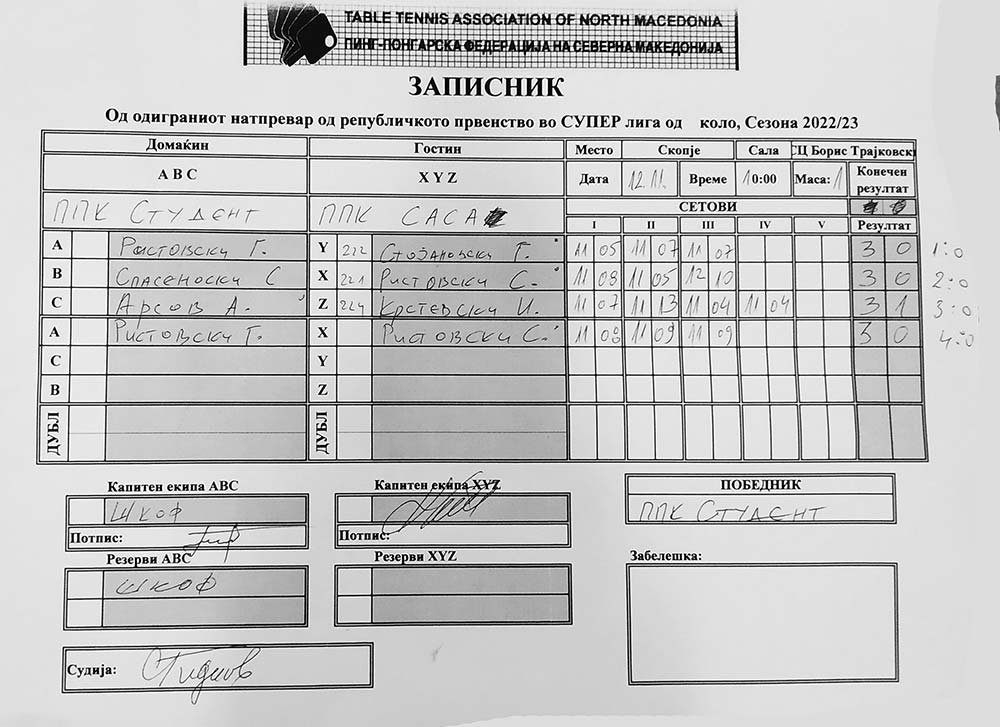 TABLE TENNIS ASSOCIATION OF NORTH MACEDONIA
ПИНГ-ПОНГАРСКА ФЕДЕРАЦИЈА НА СЕВЕРНА МАКЕДОНИЈА
ЗАПИСНИК
Од одиграниот натпревар од републичкото првенство во СУПЕР лига од коло, Сезона 2022/23
Домаќин Гостин Место Скопје Сала СЦ Борис Трајковски
A B C X Y Z Дата 12.11. Време 10:00 Маса: 1 Конечен резултат
ППК Студент ППК САСА СЕТОВИ
I II III IV V Резултат
A Ристовски Г. Y 222 Стојановски Г. 11 05 11 07 11 07 3 0 1:0
B Спасеноски С X 221 Ристовски С. 11 08 11 05 12 10 3 0 2:0
C Арсов А. Z 224 Крстевски И. 11 07 11 13 11 04 11 04 3 1 3:0
A Ристовски Г. X Ристовски С. 11 08 11 09 11 09 3 0 4:0
C Y
B Z
ДУБЛ ДУБЛ
Капитен екипа ABC Капитен екипа XYZ ПОБЕДНИК
Шкоф ППК Студент
Потпис: Потпис:
Резерви ABC Резерви XYZ Забелешка:
Шкоф
Судија: